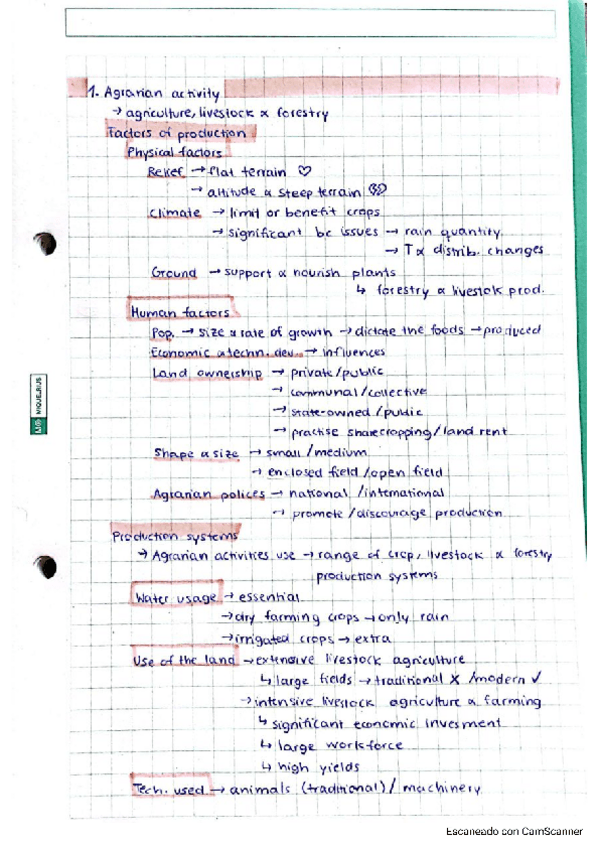 1. Agrarian activity
→ agriculture, livestock & forestry
Factors of production
Physical factors
Relief → flat terrain ♡
→ altitude & steep terrain 💔
Climate → limit or benefit crops
→ significant bc issues → rain quantity
→ T & distrib. changes
Ground → support & nourish plants
↳ forestry & livestok prod.
Human factors
Pop. → size & rate of growth → dictate the foods → produced
Economic & techn. dev. → influences
Land ownership → private/public
→ communal/collective
→ state-owned/public
→ practise sharecropping/land rent
Shape & size → small/medium
→ enclosed field/open field
Agrarian polices → national/international
→ promote/discourage production
Production systems
→ Agrarian activities use → range of crop, livestock & forestry
production systems
Water usage → essential
→ dry farming crops → only rain
→ irrigated crops → extra
Use of the land → extensive livestock agriculture
↳ large fields → traditional X /modern ✓
→ intensive livestock agriculture & farming
↳ significant economic invesment
↳ large workforce
↳ high yields
Tech. used → animals (traditional) / machinery
MIQUELRIUS
Escaneado con CamScanner